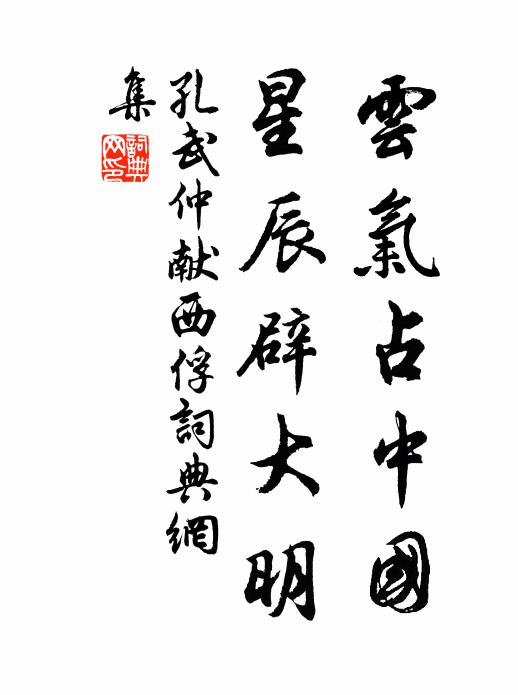 雲氣占中國
星辰辟大明
孔武仲献西俘詞典網
集
詞典
网印